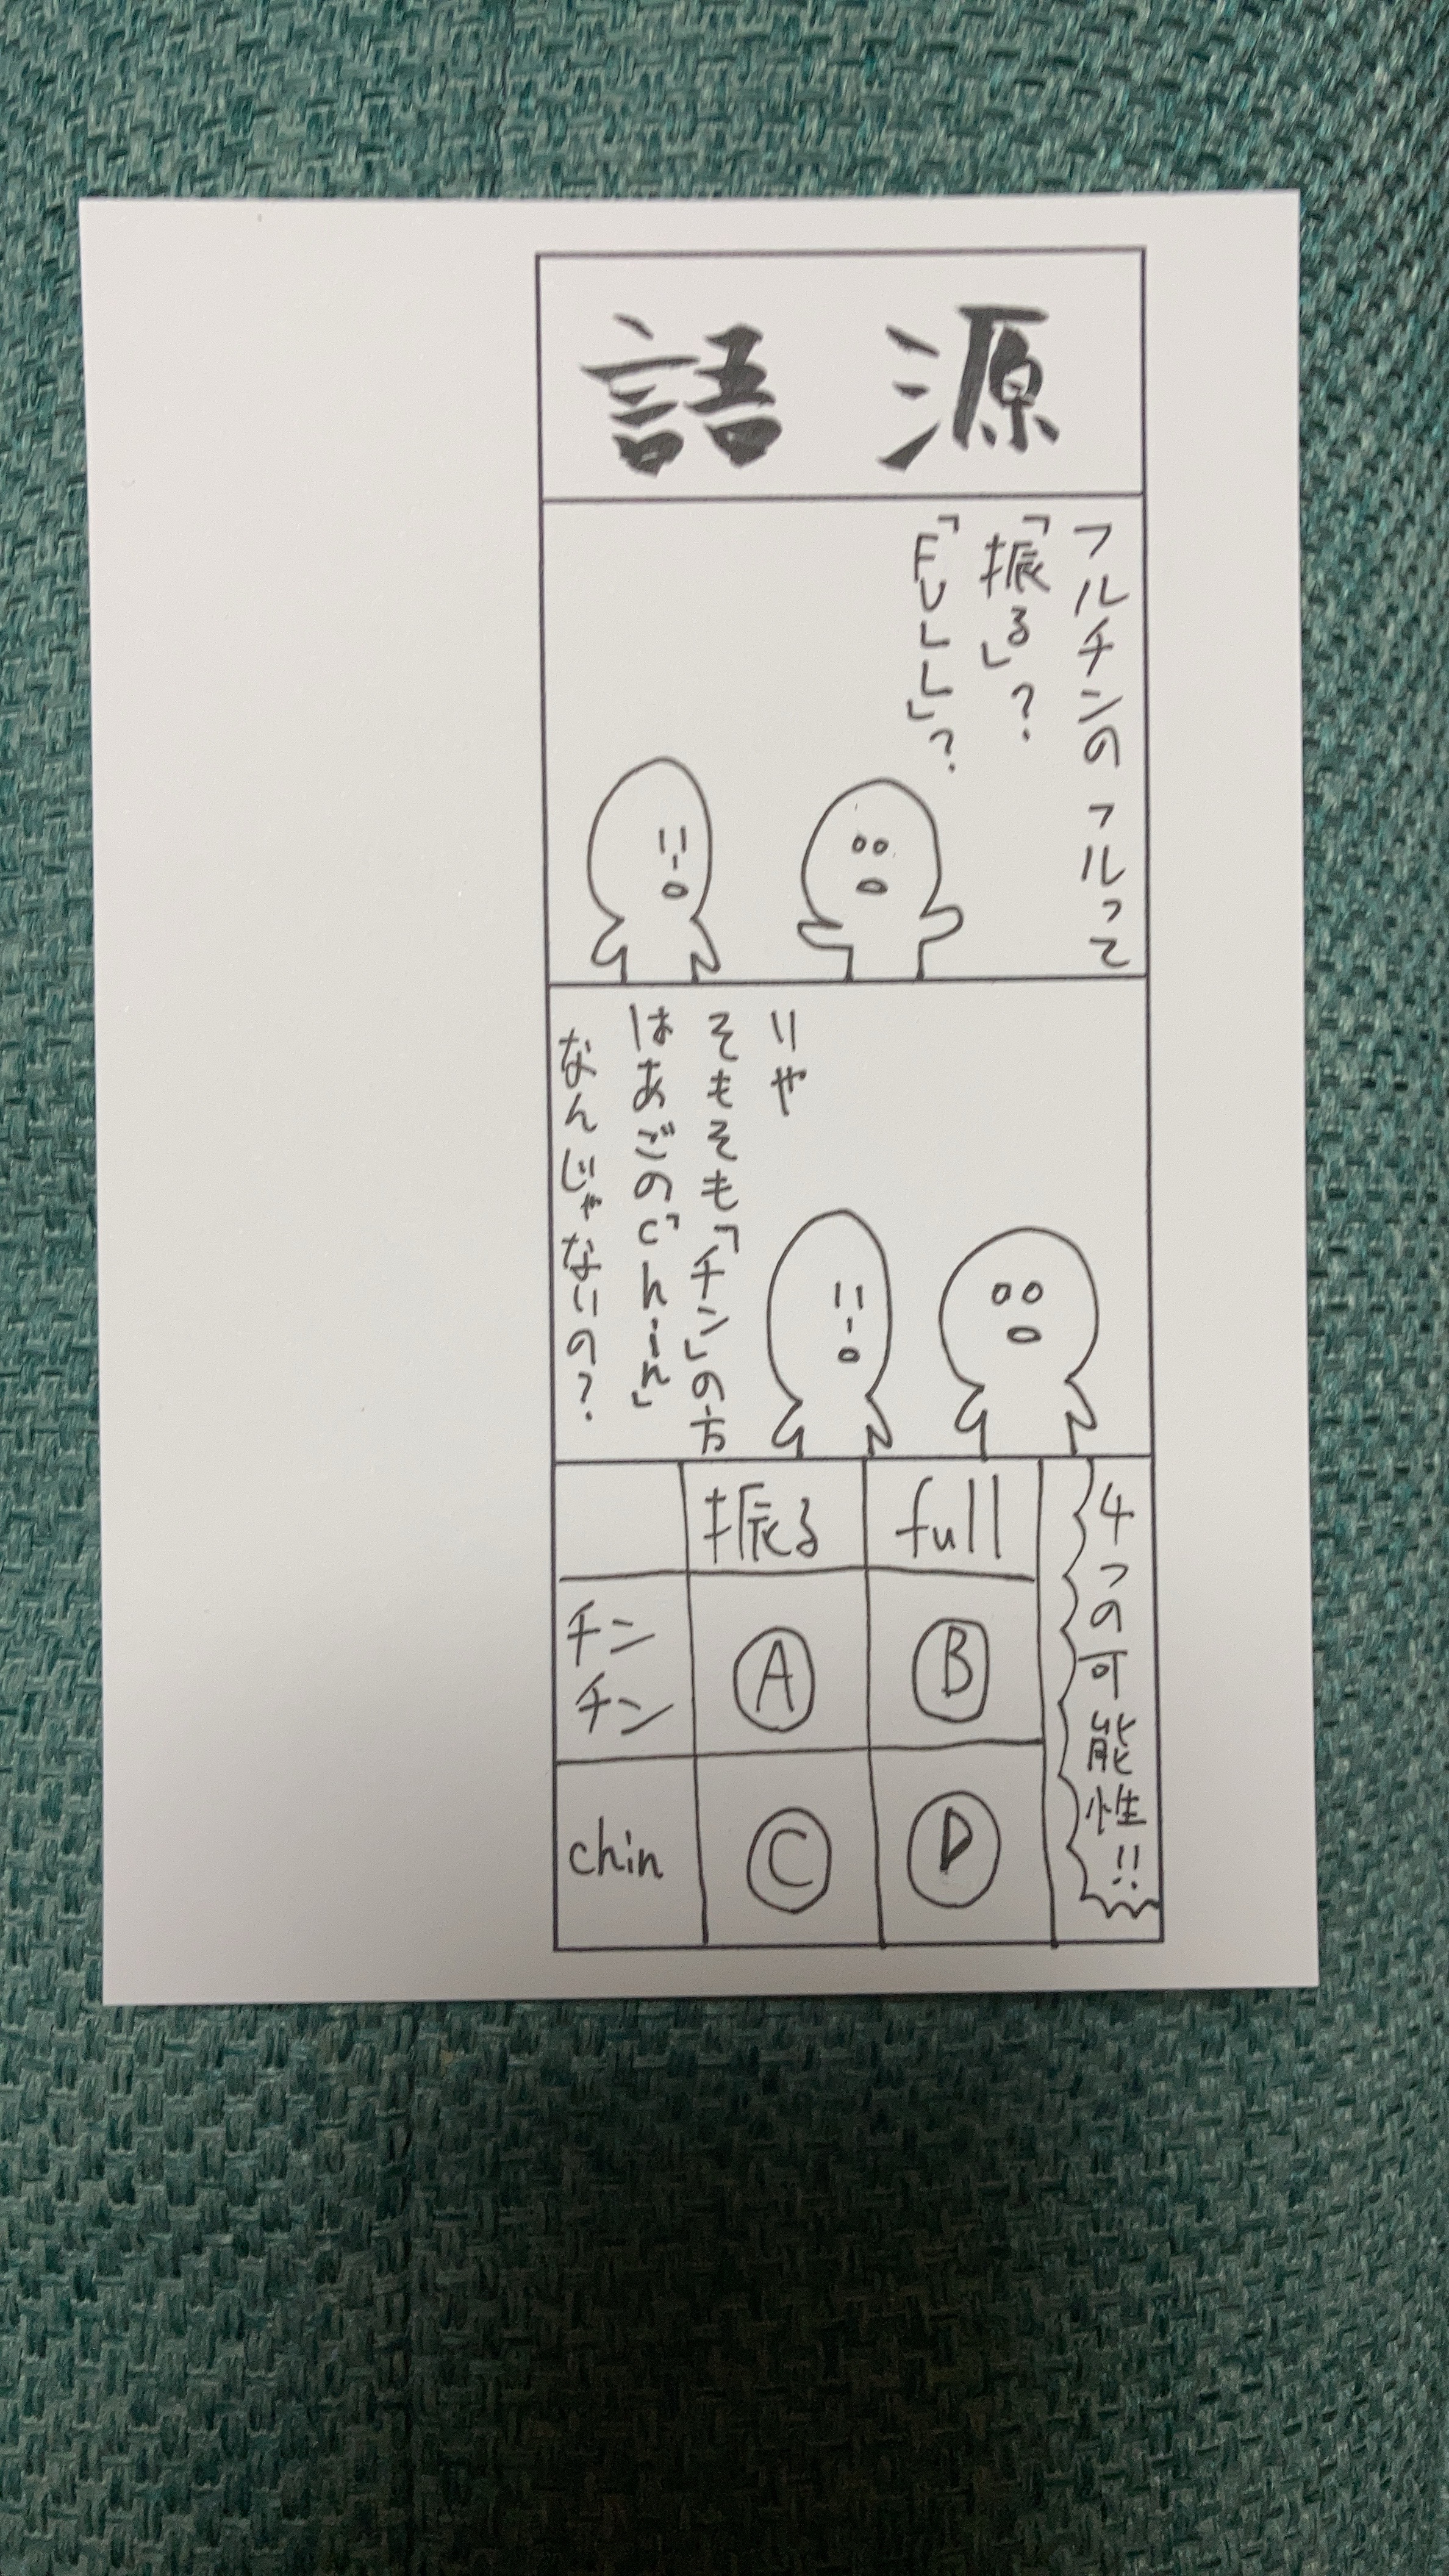 語源
フルチンのフルって
「振る」?
「FULL」?
いや
そもそも「チン」の方
はあごの「chin」
なんじゃないの?
4つの可能性!!
振る full
チン
チン
Ⓐ Ⓑ
chin Ⓒ Ⓓ